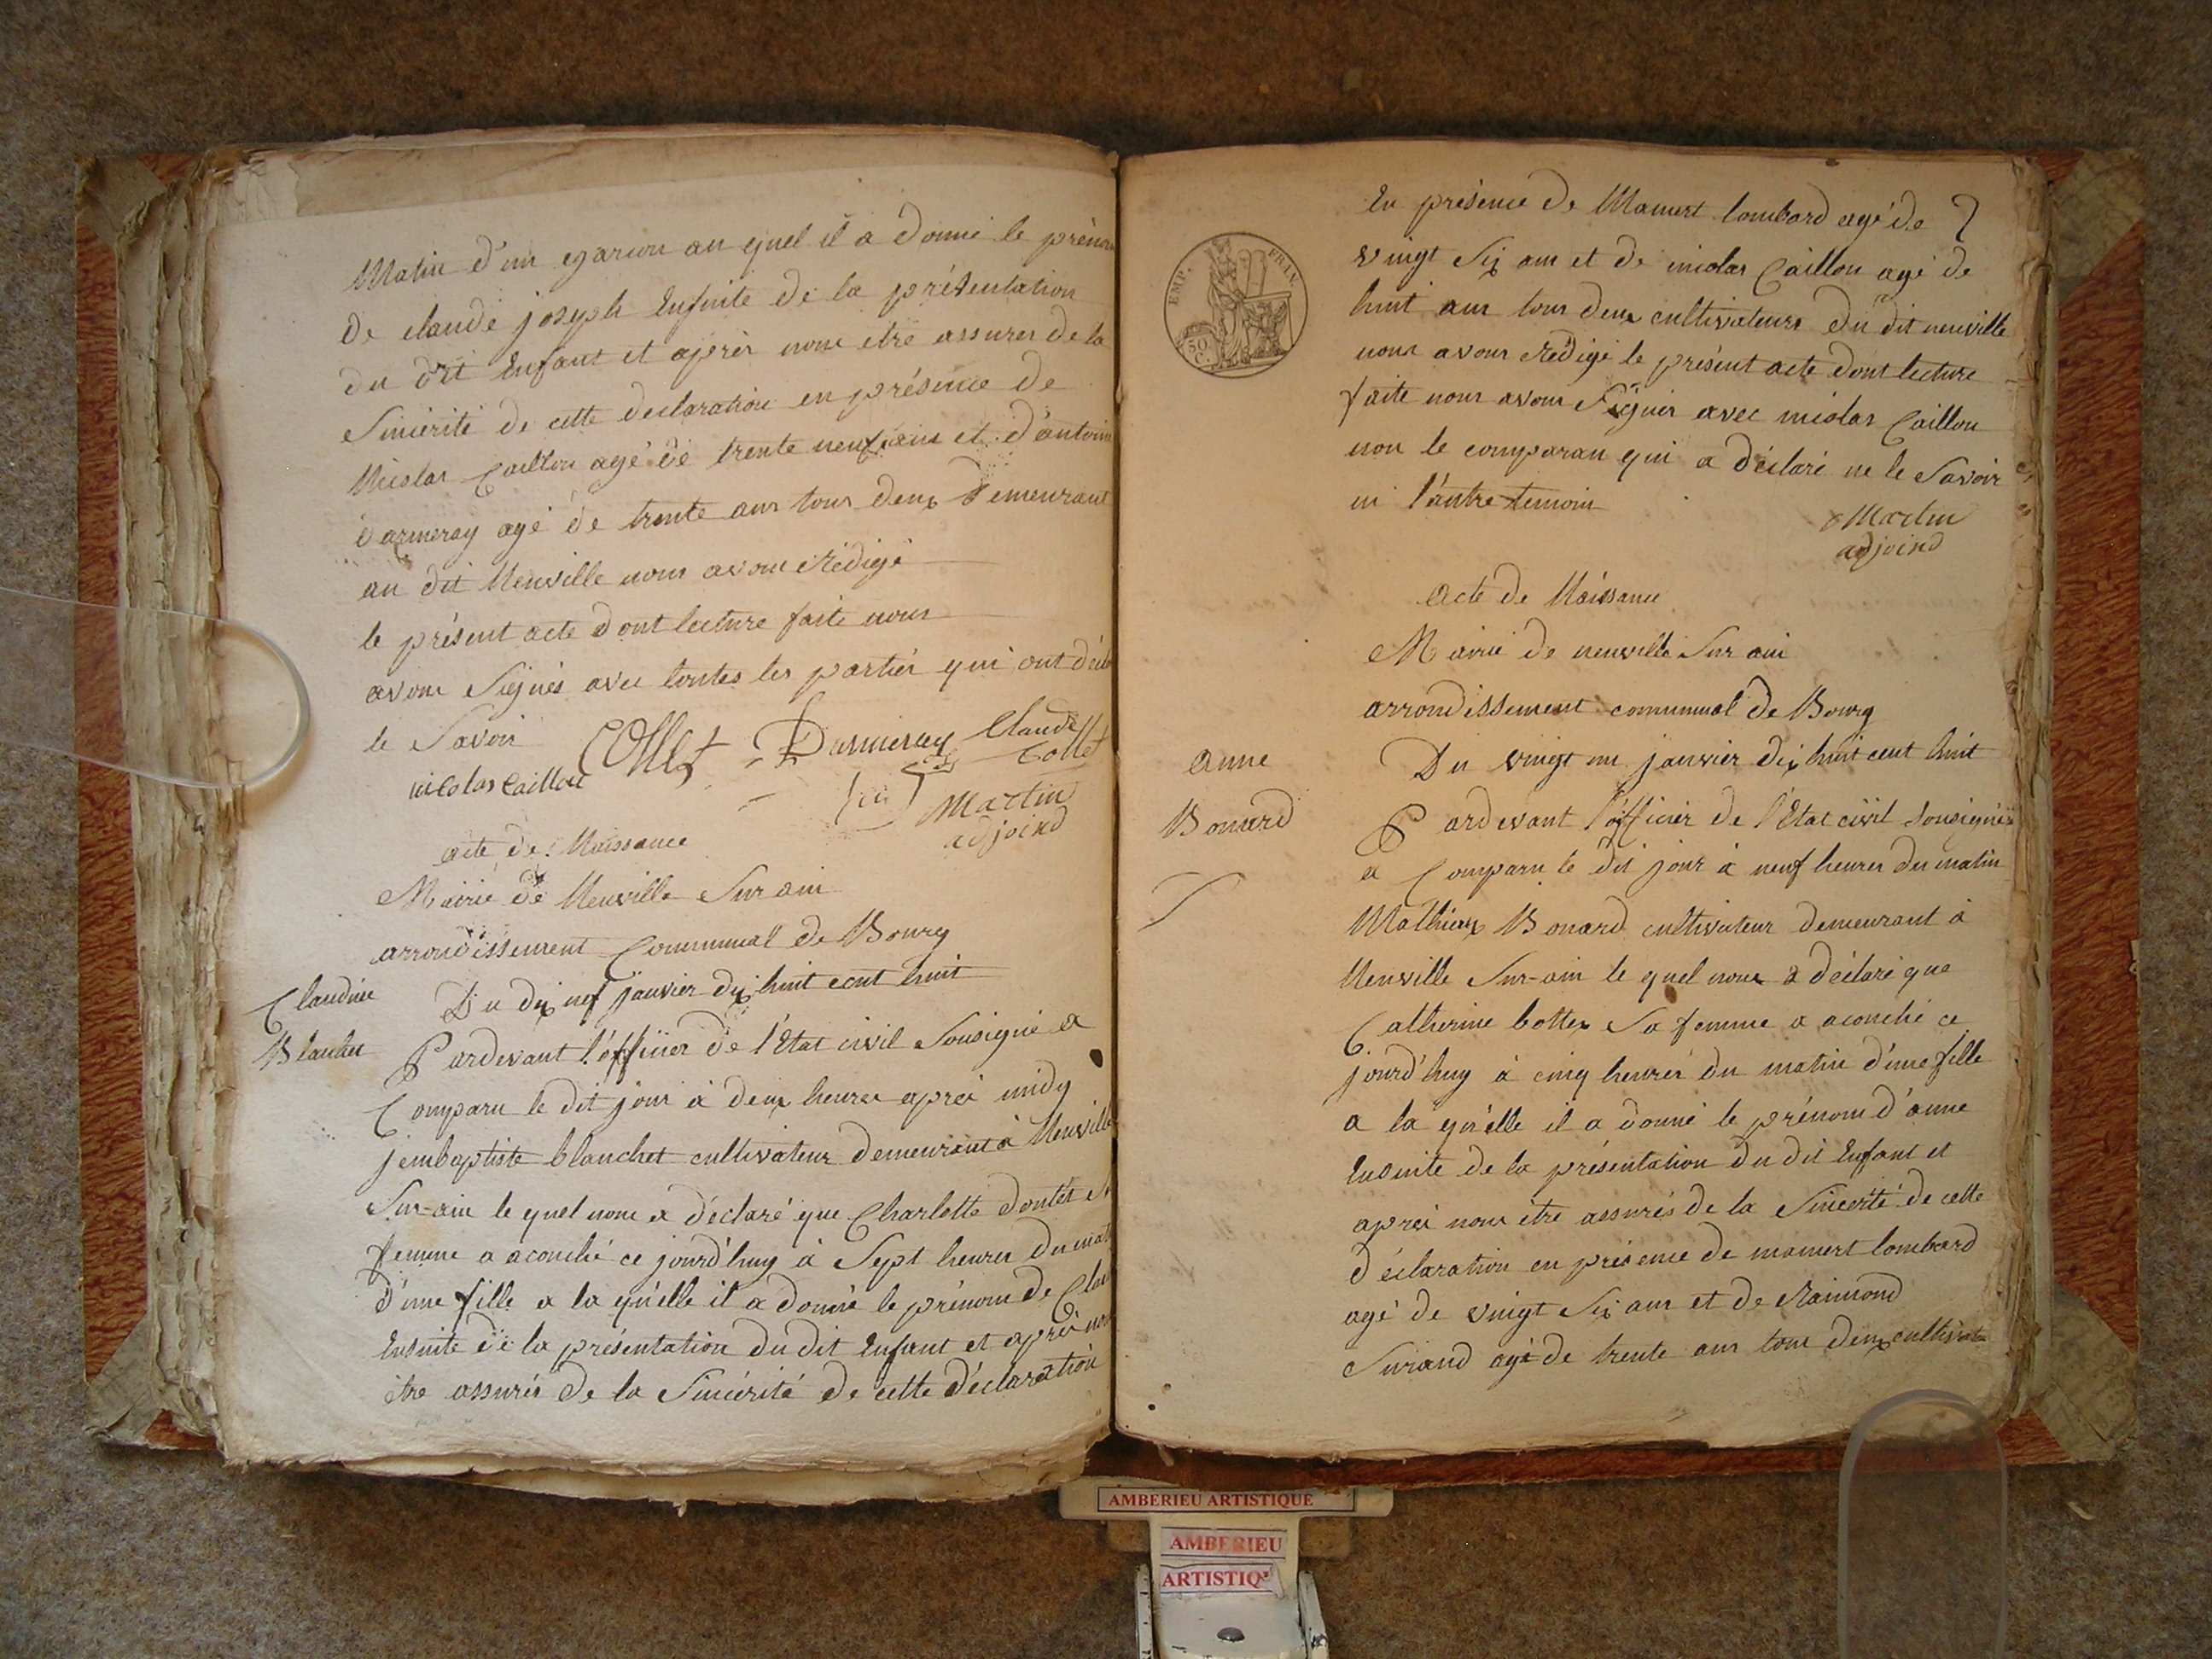 Matin d'un garcon au quel il a donné le prénom
de claude joseph Ensuite de la présentation
du dit Enfant et aprés nous etre assurés de la
Sincérité de cette declaration en présence de
Nicolas Caillon agé de trente neuf ans et d'antoine
darmeray agé de trente ans tous deux demeurant
au dit Neuville nous avons Rédigé
le présent acte dont lecture faite nous
avons Signés avec toutes les partiés qui ont déclaré
le Savoir
Collet Darmeray Claude
Collet
nicolas Caillou
Martin
adjoind
acte de Naissance
Mairie de Neuville Sur ain
arrondissement Communal de Bourg
Claudine
Blanchet
Du dix neuf janvier dix huit cent huit
Pardevant l'officier de l'Etat civil Sousigné a
Comparu le dit jour à deux heures aprés midy
jembaptiste blanchet cultivateur demeurant à Neuville
Sur-ain le quel nous a déclaré que Charlotte
femme a acouché ce jourd'huy à Sept heures du matin
d'une fille a la qu'elle il a donné le prénom de
Ensuite de la présentation du dit Enfant et aprés nous
être assurés de la Sincérité de cette déclaration
EMP. FRAN.
50
C.
En présence de Mamert lombard agé de
vingt Six ans et de nicolas Caillon agé de
huit ans tous deux cultivateurs du dit neuville
nous avons Rédigé le présent acte dont lecture
faite nous avons Signés avec nicolas Caillon
non le comparan qui a déclaré ne le Savoir
ni l'autre temoin
Martin
adjoind
acte de Naissance
Mairie de neuville Sur ain
arrondissement communal de Bourg
anne
Bonard
Du vingt un janvier dix huit cent huit
Pardevant l'officier de l'Etat civil Sousigné
a Comparu le dit jour à neuf heures du matin
Mathieux Bonard cultivateur demeurant à
Neuville Sur-ain le quel nous a déclaré que
Catherine bottex Sa femme a acouché ce
jourd'huy à cinq heures du matin d'une fille
a la qu'elle il a donné le prénom d'anne
Ensuite de la présentation du dit Enfant et
aprés nous etre assurés de la Sincerité de cette
déclaration en présence de mamert lombard
agé de vingt Six ans et de Raimond
Surand agé de trente ans tous deux cultivateurs
AMBERIEU ARTISTIQUE
AMBERIEU
ARTISTIQ